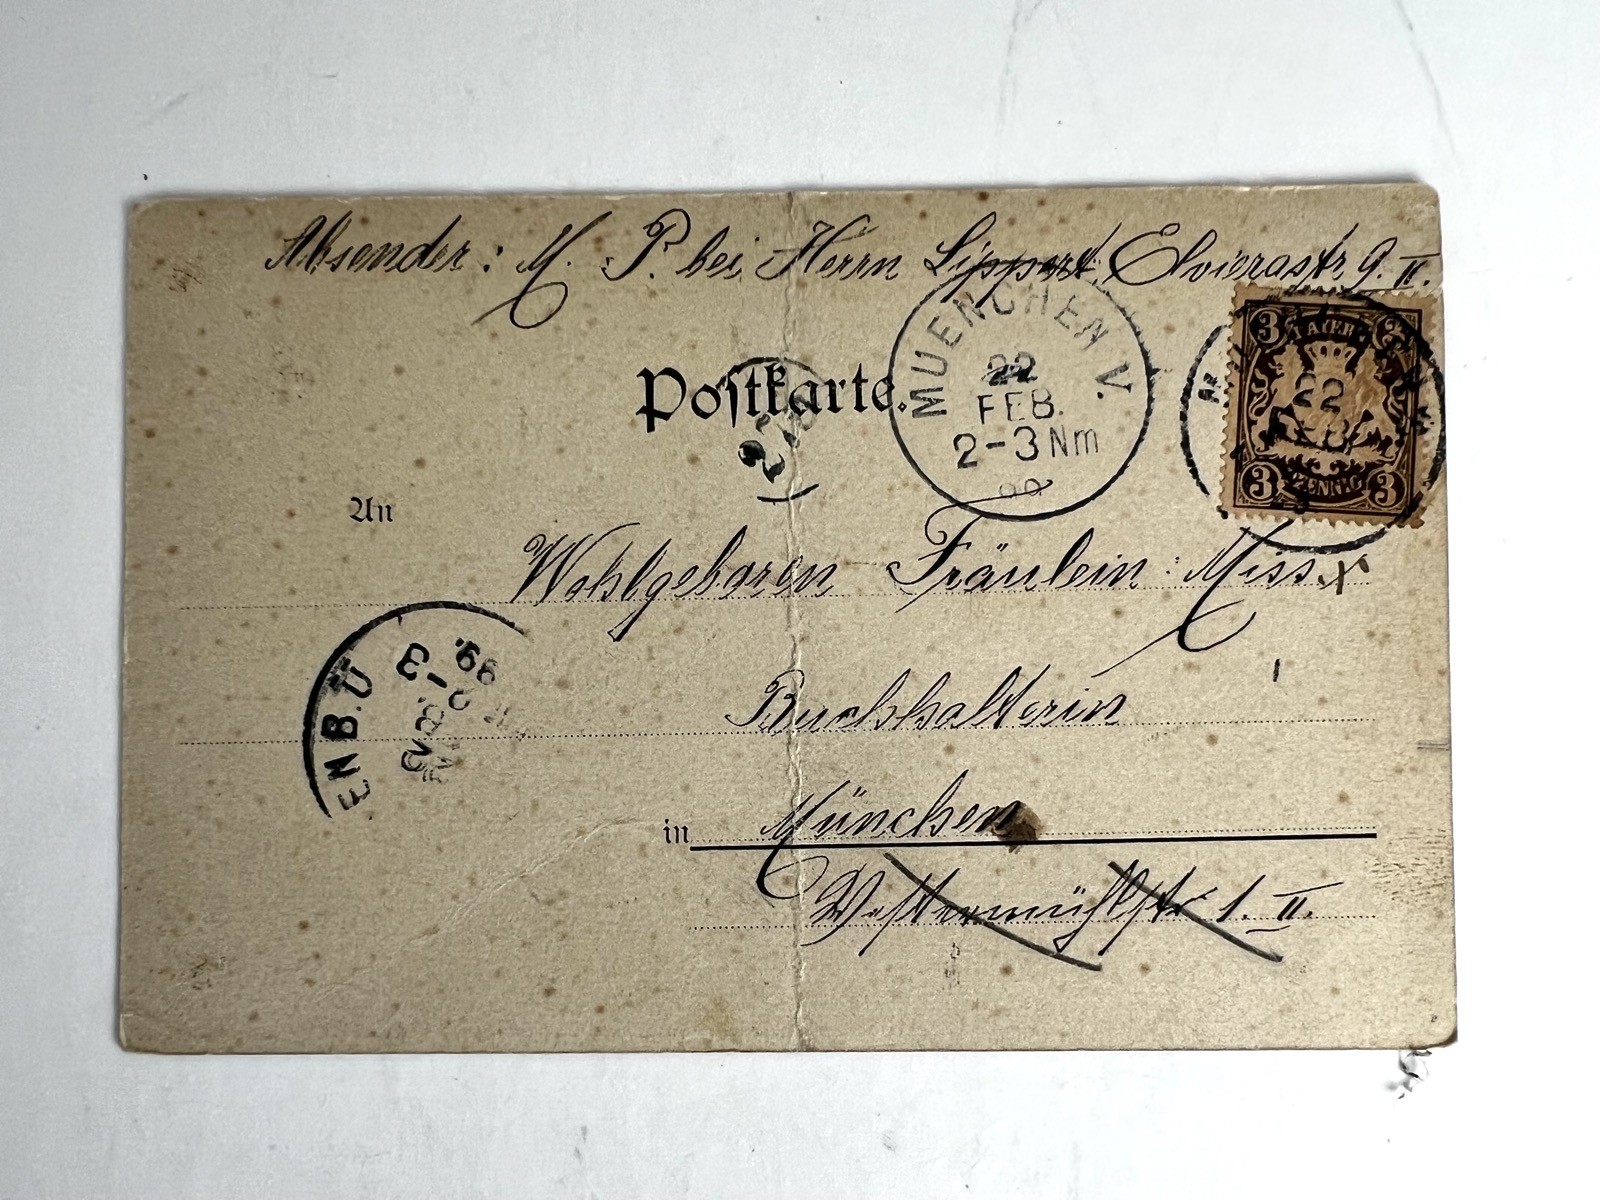 Absender: M. P. bei Herrn Lippert, Elvirastr. 9. II.
Postkarte.
MUENCHEN V.
22
FEB.
2-3 Nm
99
3 BAYERN 3
22
FEB.
3 PFENNIG 3
An
Wohlgeboren Fräulein: Miss. X
Buchhalterin
ENB.U
99.
in München
Westermühlstr. 1. II.